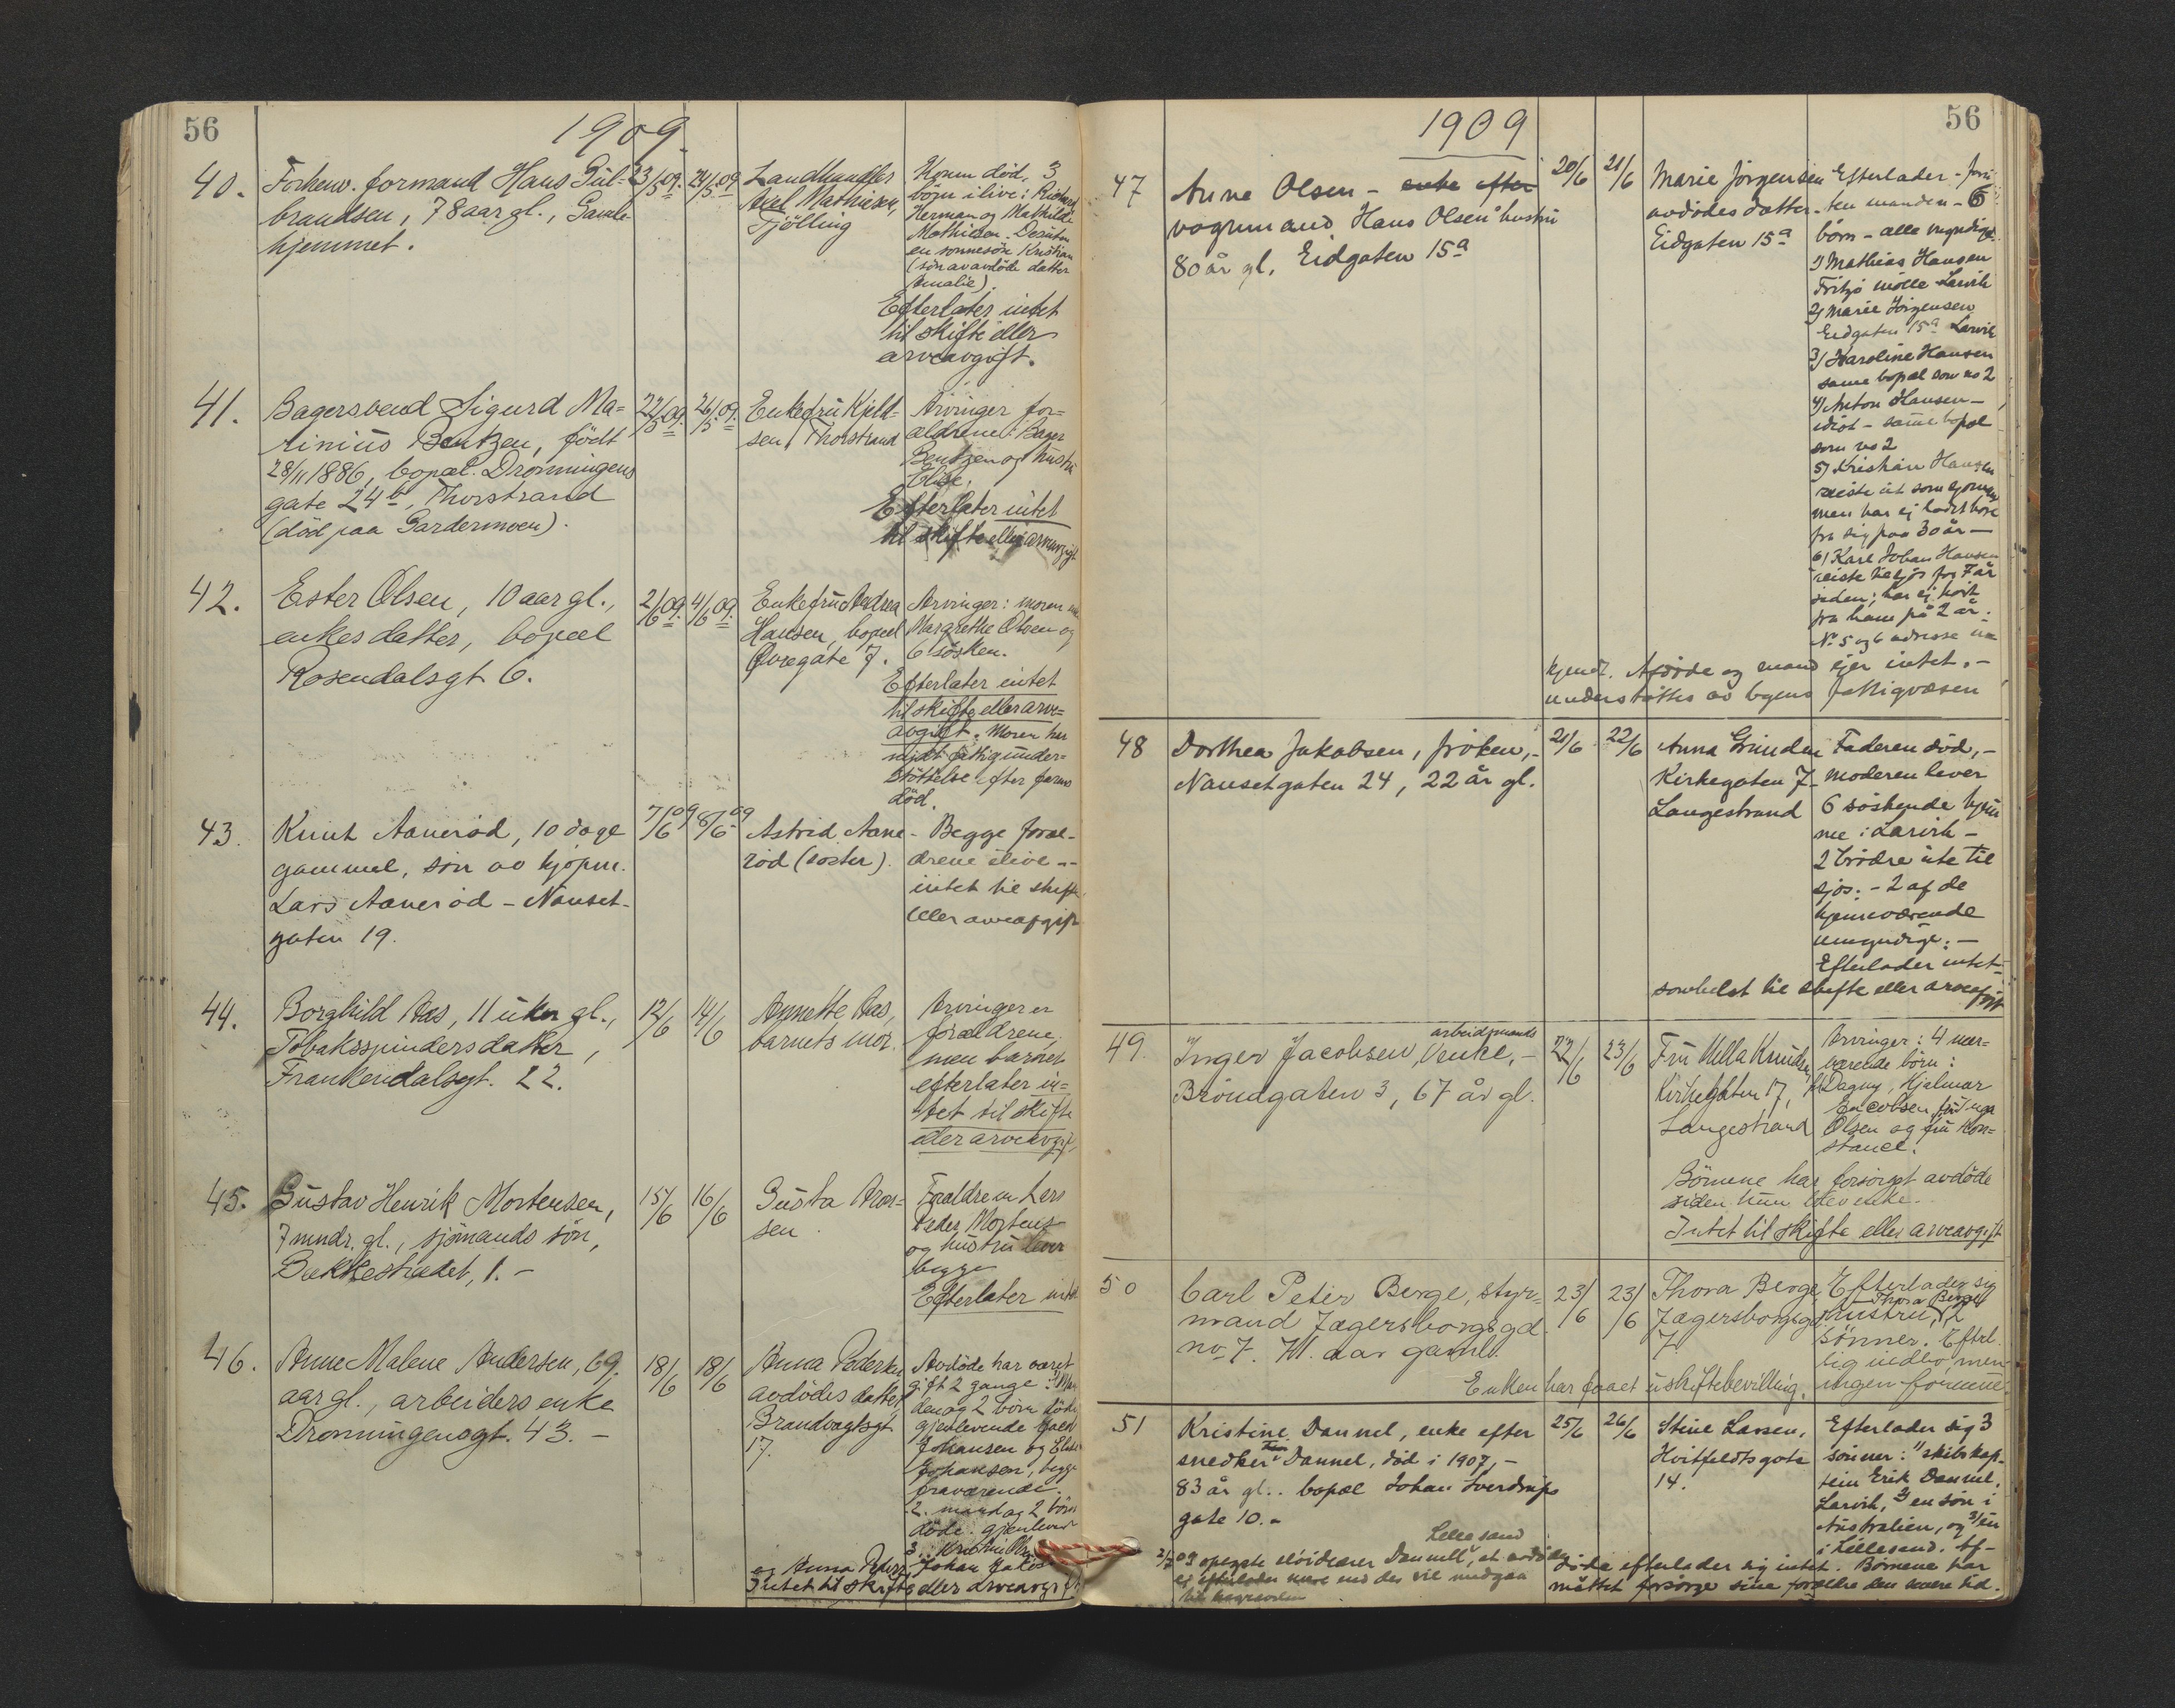 56
1909.
40.
Forhenv. formand Hans Gul=
brandsen, 78 aar gl., Gamle
hjemmet.
23/5 09.
24/5 09
Landhandler
Axel Mathisen,
Tjölling
Konen död, 3
börn ilive: Richard
Herman og Mathilde
Mathisen. Desuten
en sönnesön Kristian
(sön av avdöde datter
Amalie).
Efterlater intet
til skifte eller
arveavgift.
41.
Bagersvend Sigurd Ma=
rinius Bentzen, födt
28/11 1886, bopæl. Dronningens
gate 24b, Thorstrand
(död paa Gardermoen).
22/5 09.
26/5 09.
Enkefru Kjeld-
sen, Thorstrand
Arvinger for=
ældrene: Bager
Bentzen og hustru
Elise.
Efterlater intet
til skifte eller arveavgift
42.
Ester Olsen, 10 aar gl.,
enkes datter, bopæl
Rosendalsgt 6.
2/6 09.
4/6 09.
Enkefru Andrea
Hansen, bopæl
Övregate 7.
Arvinger: moren
Margrethe Olsen og
6 sösken.
Efterlater intet
til skifte eller arve=
avgift. Moren har
nydt fattigunder=
støttelse efter farens
död.
43.
Knut Aanerød, 10 dage
gammel, sön av kjøpm.
Lars Aanerød - Nanset-
gaten 19.
7/6 09
8/6 09
Astrid Aane-
rød (søster).
Begge foræl-
drene ilive --
intet til skifte
eller arveafgift
44.
Borghild Aas, 11 uker gl.,
Tobaksspinders datter,
Frankendalsgt. 22.
12/6
14/6
Annette Aas,
barnets mor.
Arvinger er
forældrene
men barnet
efterlater in=
tet til skifte
eller arveavgift
45.
Gustav Henrik Mortensen,
7 mndr. gl., sjömands sön,
Bakkestrædet, 1.-
15/6
16/6
Gusta Aron=
sen
Forældrene
Peder Mortens
og hustru lever
begge
Efterlater intet
46.
Anne Malene Andersen, 69.
aar gl., arbeiders enke
Dronningensgt. 43. -
18/6
18/6
Anna Pedersen
avdödes datter,
Brandvagtsgt
17.
Avdöde har været
gift 2 gange:
den og 2 börn döde
gjenlevende
Johansen og
Johansen, begge
fraværende.
2. mand og 2 börn
döde. gjenlevende
3: Kristine
og Anna Peders. Johan
Intet til skifte eller arveavgift
1909
56
47
Anne Olsen - enke efter
vognmand Hans Olsens hustru
80 år gl. Eidgaten 15a
20/6
21/6
Marie Jörgensen
avdødes datter-
Eidgaten 15a
Efterlader - foru
ten manden - 6
børn - alle myndige.
1) Mathias Hansen
Fritzø mølle Larvik
2) Marie Jörgensen
Eidgaten 15a Larvik
3) Karoline Hansen
samme bopæl som no 2
4) Anton Hansen -
idiot - samme bopæl
som no 2
5) Kristian Hansen
reiste ut som
men har ej ladet høre
fra sig paa 30 år -
6) Karl Johan Hansen
reiste til sjös for 7 år
siden; har ej hört
fra ham på 2 år.
No 5 og 6 adresse u=
kjendt. Afdøde og mand ejer intet. -
understøttes av byens Fattigvæsen
48
Dorthea Jakobsen, frøken, -
Nansetgaten 24, 22 år gl.
21/6
22/6
Anna Grinden
Kirkegaten 7-
Langestrand
Faderen død, -
moderen lever
6 søskende hjem
me i Larvik -
2 brødre ute til
sjøs. - 2 af de
hjemmeværende
umyndige. -
Efterlader intet=
somhelst til skifte eller arveafgift
49.
Inger Jacobsen, arbeidsmands enke, -
Bröndgaten 3, 67 år gl.
22/6
23/6
Fru Hella Knudsen
Kirkegaten 17,
Langestrand
Arvinger: 4 nær-
værende börn:
Dagny, Hjalmar
Jacobsen, fru Inga
Olsen og fru Kon=
stance.
Börnene har forsörget avdöde
siden hun blev enke.
Intet til skifte eller arveavgift
50
Carl Peter Berge, styr=
mand Jægersborgsgd.
no 7. 71. aar gaml.
23/6
23/6
Thora Berge
Jægersborgsgd
7.
Efterlader sig
hustru Thora Berge, 2
sönner. Efterl.
sig indbo, men
ingen formue.
Enken har faaet uskiftebevilling.
51
Kristine Dannel, enke efter
snedker Dannel, død i 1907, -
83 år gl.. bopæl Johan Sverdrups
gate 10. -
25/6
26/6
Stine Larsen,
Hvitfeldtsgate
14.
Efterlader sig 3
sønner: 1) skibskap-
tein Erik Dannel,
Larvik, 2) en søn i
Australien, og 3) en
i Lillesand. Af-
døde efterlader sig intet. Børnene har
måttet forsørge sine forældre den senere tid.
2/7 09 opgir sløidlærer Dannell, Lillesand, at avdöde
ej efterlader mere end der vil medgaa
til begravelsen